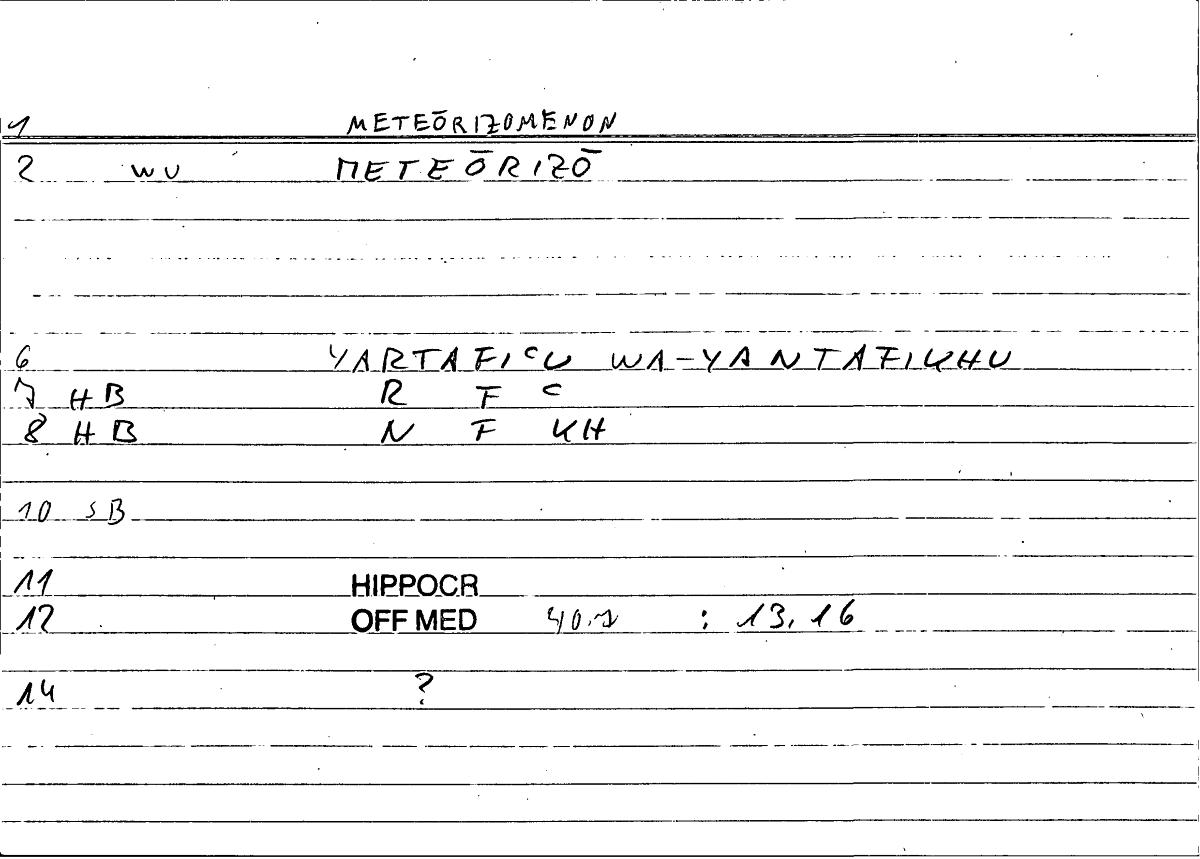 1 METEŌRIZOMENON
2 WU METEŌRIZŌ
6 YARTAFIcU WA-YANTAFIKHU
7 HB R F c
8 HB N F KH
10 SB
11 HIPPOCR
12 OFF MED 40.1 : 13,16
14 ?